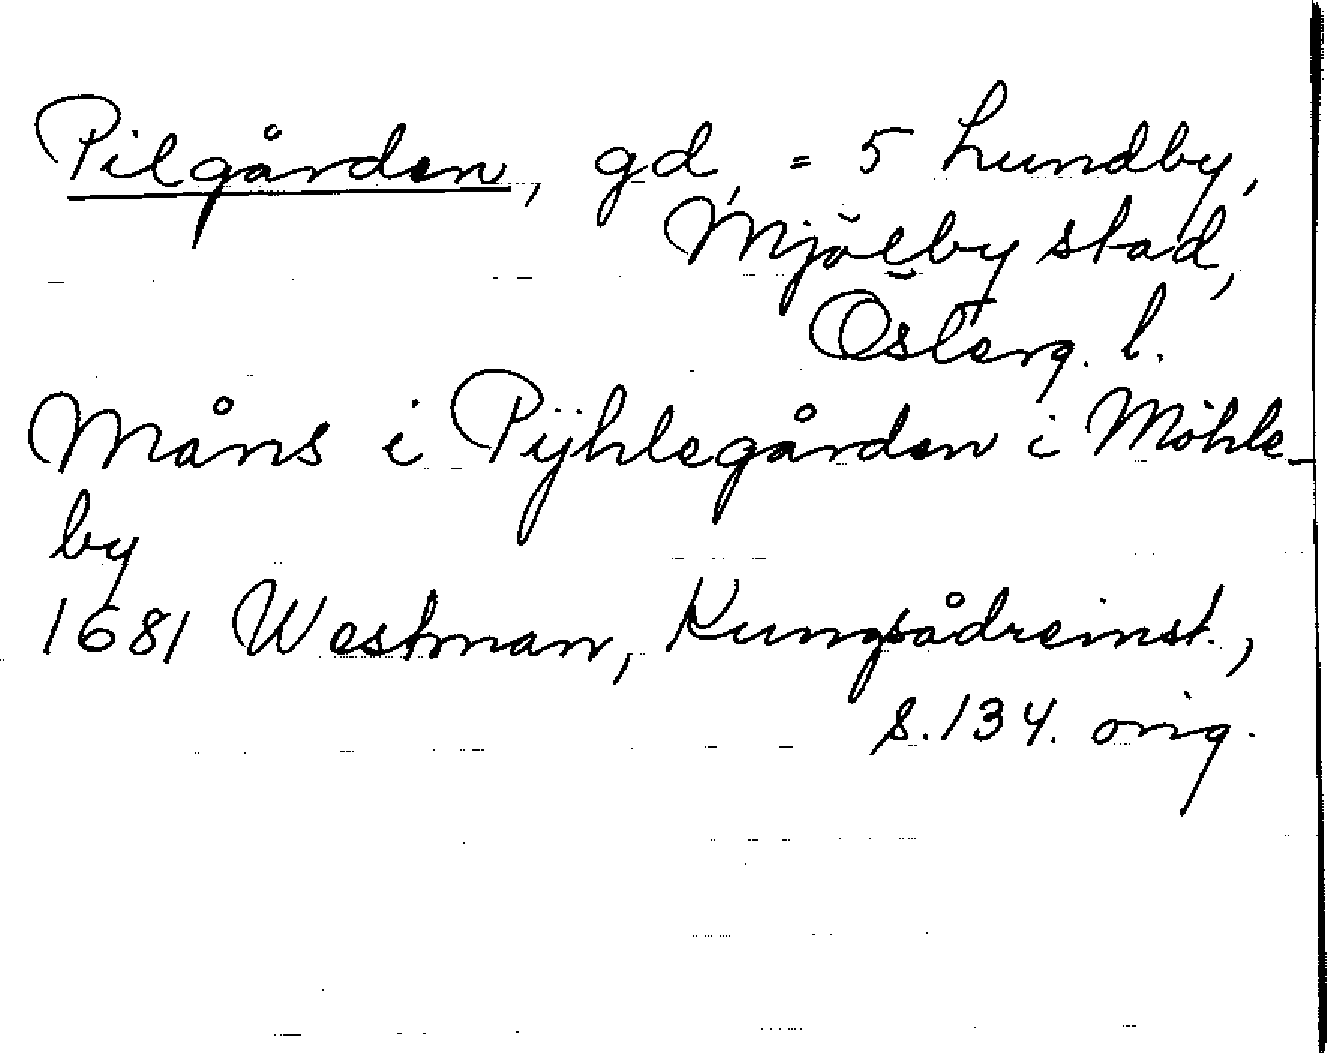 Pilgården, gd, = 5 Lundby,
Mjölby stad,
Österg. l.
Måns i Pÿhlegården i Möhle-
by
1681 Westman, Kungsådreinst.,
s. 134. orig.